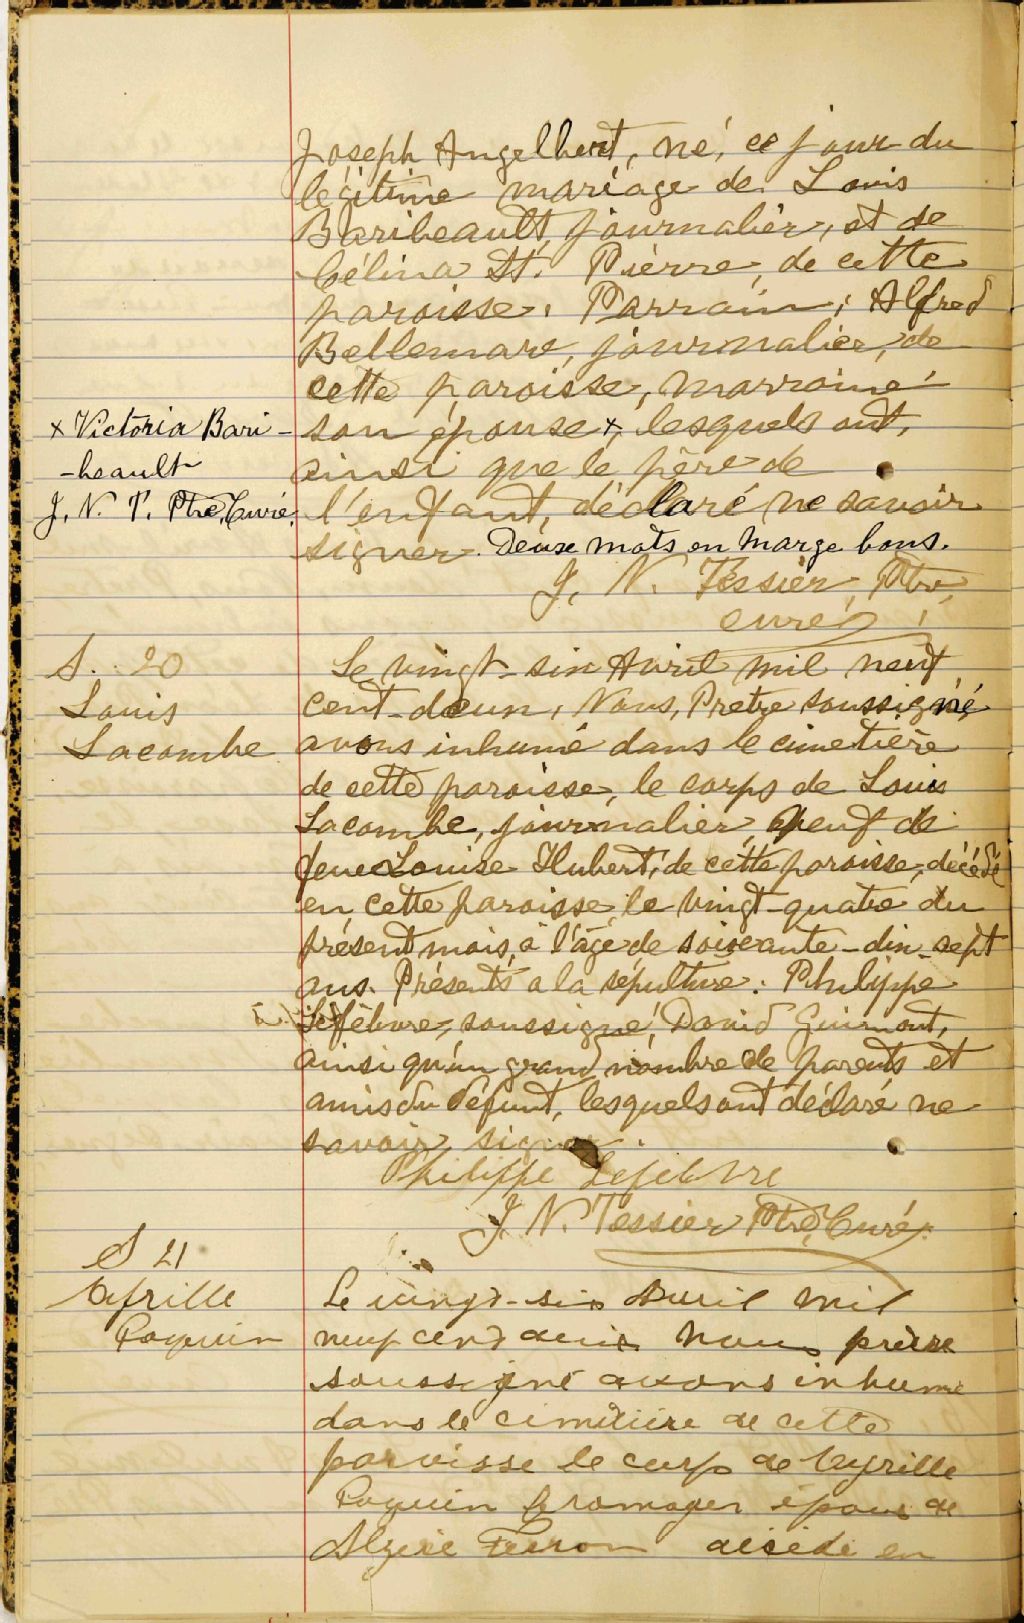 Joseph Angelbert, né, ce jour du
légitime mariage de Louis
Baribeault, journalier, et de
Célina St. Pierre, de cette
paroisse. Parrain, Alfred
Bellemare, journalier, de
cette paroisse, marraine
x Victoria Bari-
-beault
J. N. T. Ptre, Curé.
son épouse x, lesquels ont,
ainsi que le père de
l'enfant, déclaré ne savoir
signer. Deux mots en marge bons.
J. N. Tessier, Ptre,
curé
S. 20
Louis
Lacombe
Le vingt-six Avril mil neuf
cent-deux, Nous, Prêtre soussigné,
avons inhumé dans le cimetière
de cette paroisse, le corps de Louis
Lacombe, journalier, veuf de
feue Louise Hubert, de cette paroisse, décédé
en cette paroisse, le vingt-quatre du
présent mois, à l'âge de soixante-dix-sept
ans. Présents a la sépulture: Philippe
Lefebvre, soussigné, David Guimont,
ainsi qu'un grand nombre de parents et
amis du défunt, lesquels ont déclaré ne
savoir signer.
Philippe Lefebvre
J. N. Tessier Ptre, Curé.
S 21
Cyrille
Paquin
Le vingt-six Avril mil
neuf cent deux Nous prêtre
soussigné avons inhumé
dans le cimetière de cette
paroisse le corps de Cyrille
Paquin fromager époux de
Alzire Ferron décédé en